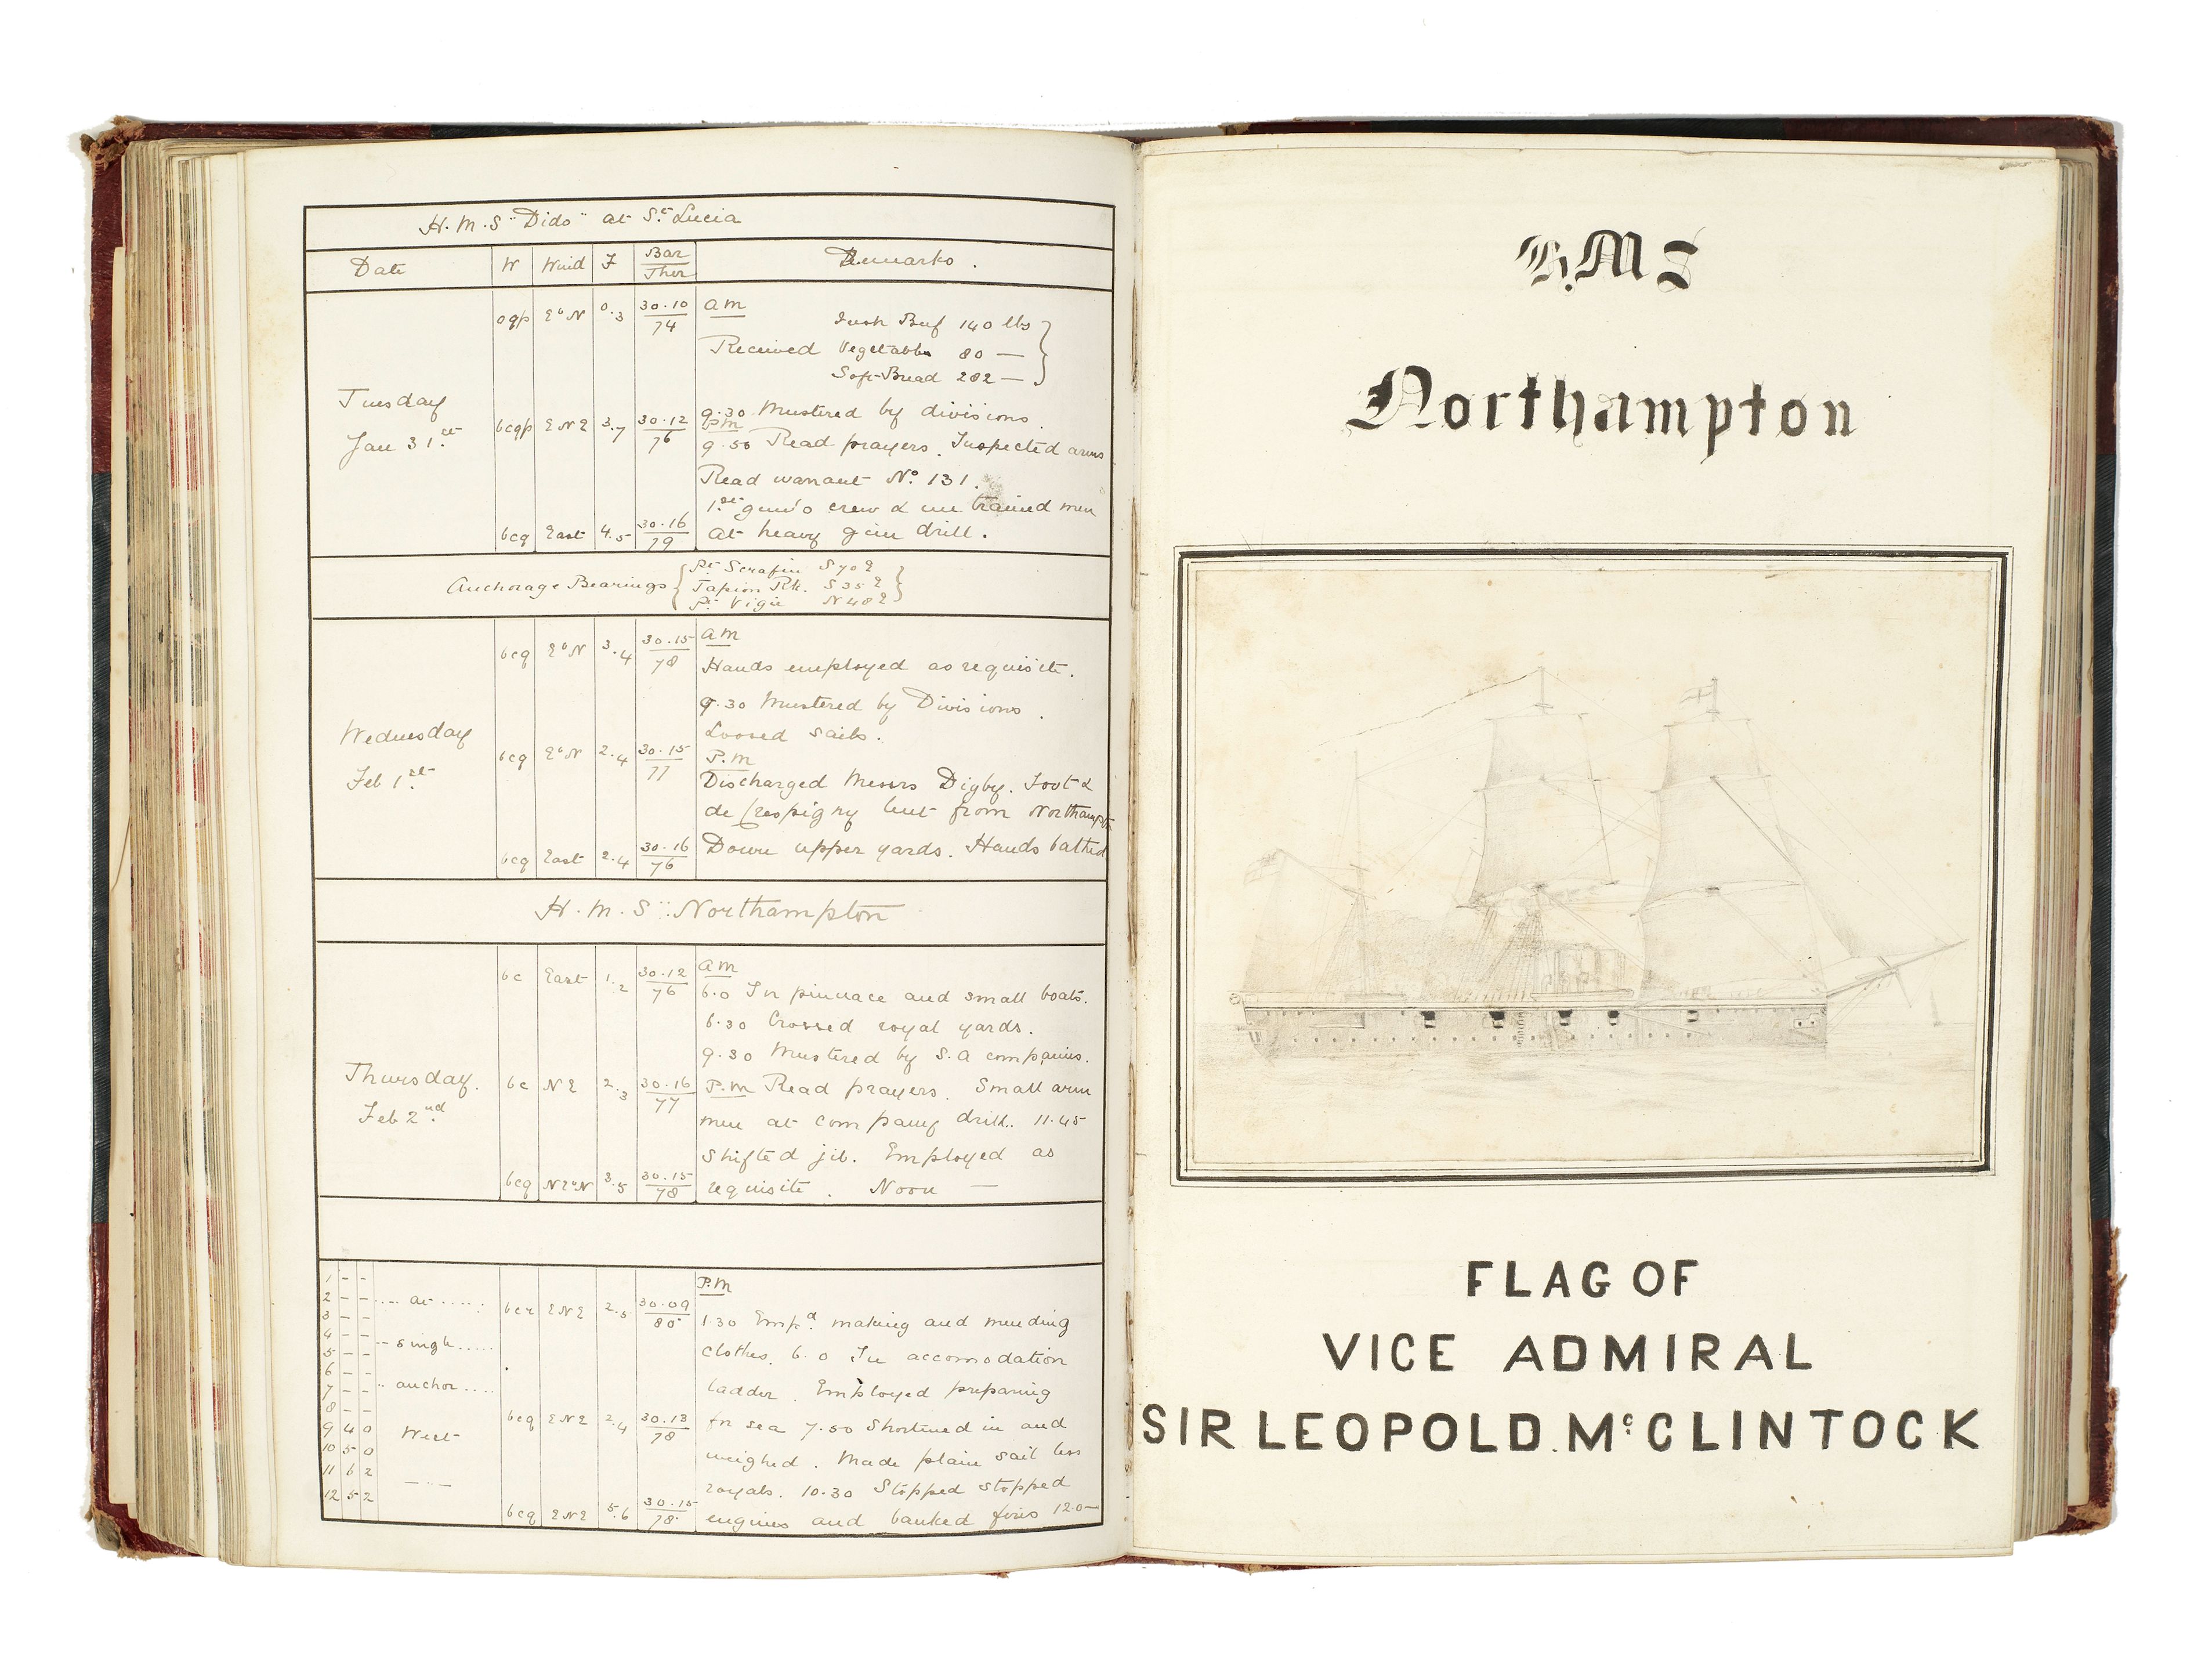 H.M.S "Dido" at St Lucia
Date W Wind F Bar Ther Remarks.
ogp EbN 0.3 30.10 74 am
Fresh Beef 140 lbs
Received Vegetables 80 —
Soft Bread 282 —
Tuesday Jan 31st
9.30 Mustered by divisions.
bcqp ENE 3.7 30.12 76 pm
9.50 Read prayers. Inspected arms
Read warrant No. 131.
1st gun's crew & un trained men
bcq East 4.5 30.16 79 at heavy gun drill.
Anchorage Bearings
Pt Serafin S70E
Tapion Rk. S35E
Pt Vigie N48E
bcq EbN 3.4 30.15 78 am
Hands employed as requisite.
9.30 Mustered by Divisions.
Wednesday Feb 1st
Loosed sails.
bcq EbN 2.4 30.15 77 P.M
Discharged Messrs Digby. Foot &
de Crespigny lent from Northampton
bcq East 2.4 30.16 76 Down upper yards. Hands bathed
H.M.S "Northampton
bc East 1.2 30.12 76 am
6.0 In pinnace and small boats.
6.30 Crossed royal yards.
9.30 Mustered by S.A companies.
Thursday. Feb 2nd
bc NE 2.3 30.16 77 P.M Read prayers. Small arm
men at company drill. 11.45
Shifted jib. Employed as
bcq NEbN 3.5 30.15 78 requisite. Noon —
P.M
1 – –
2 – – .... at ......
bcq ENE 2.5 30.09 80
3 – –
1.30 Empd. making and mending
4 – –
5 – – -- single .....
clothes. 6.0 In accomodation
6 – –
7 – – .. anchor ....
ladder. Employed preparing
8 – –
bcq ENE 2.4 30.13 78 for sea 7.50 Shortened in and
9 4 0 West
10 5 0
weighed. Made plain sail less
11 6 2
royals. 10.30 Stopped stopped
12 5 2
bcq ENE 5.6 30.15 78 engines and banked fires 12.0—
H.M S
Northampton
FLAG OF
VICE ADMIRAL
SIR LEOPOLD. McCLINTOCK